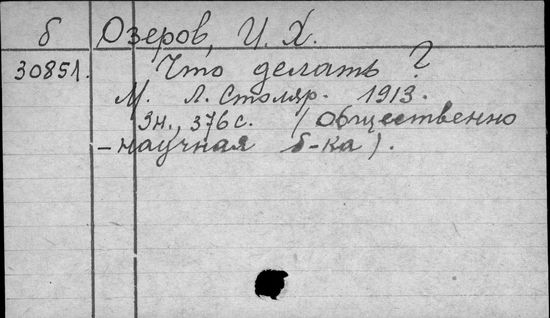 б Озеров, И. Х.
30851. Что делать?
М. Л. Столяр. 1913.
Зн., 376 с. (Общественно
-научная б-ка).